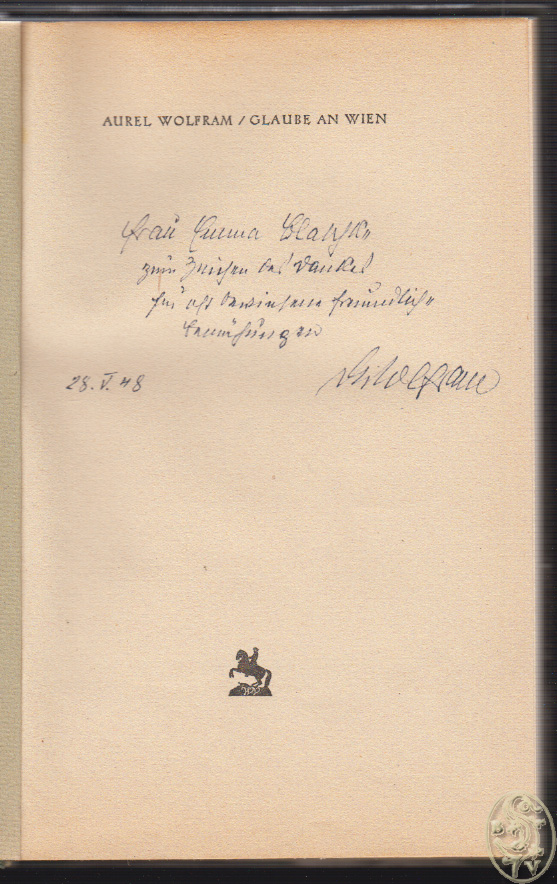 AUREL WOLFRAM / GLAUBE AN WIEN
Frau Emma
zum Zeichen des Dankes
für oft bewiesene freundliche
Bemühungen
28. V. 48
Wolfram